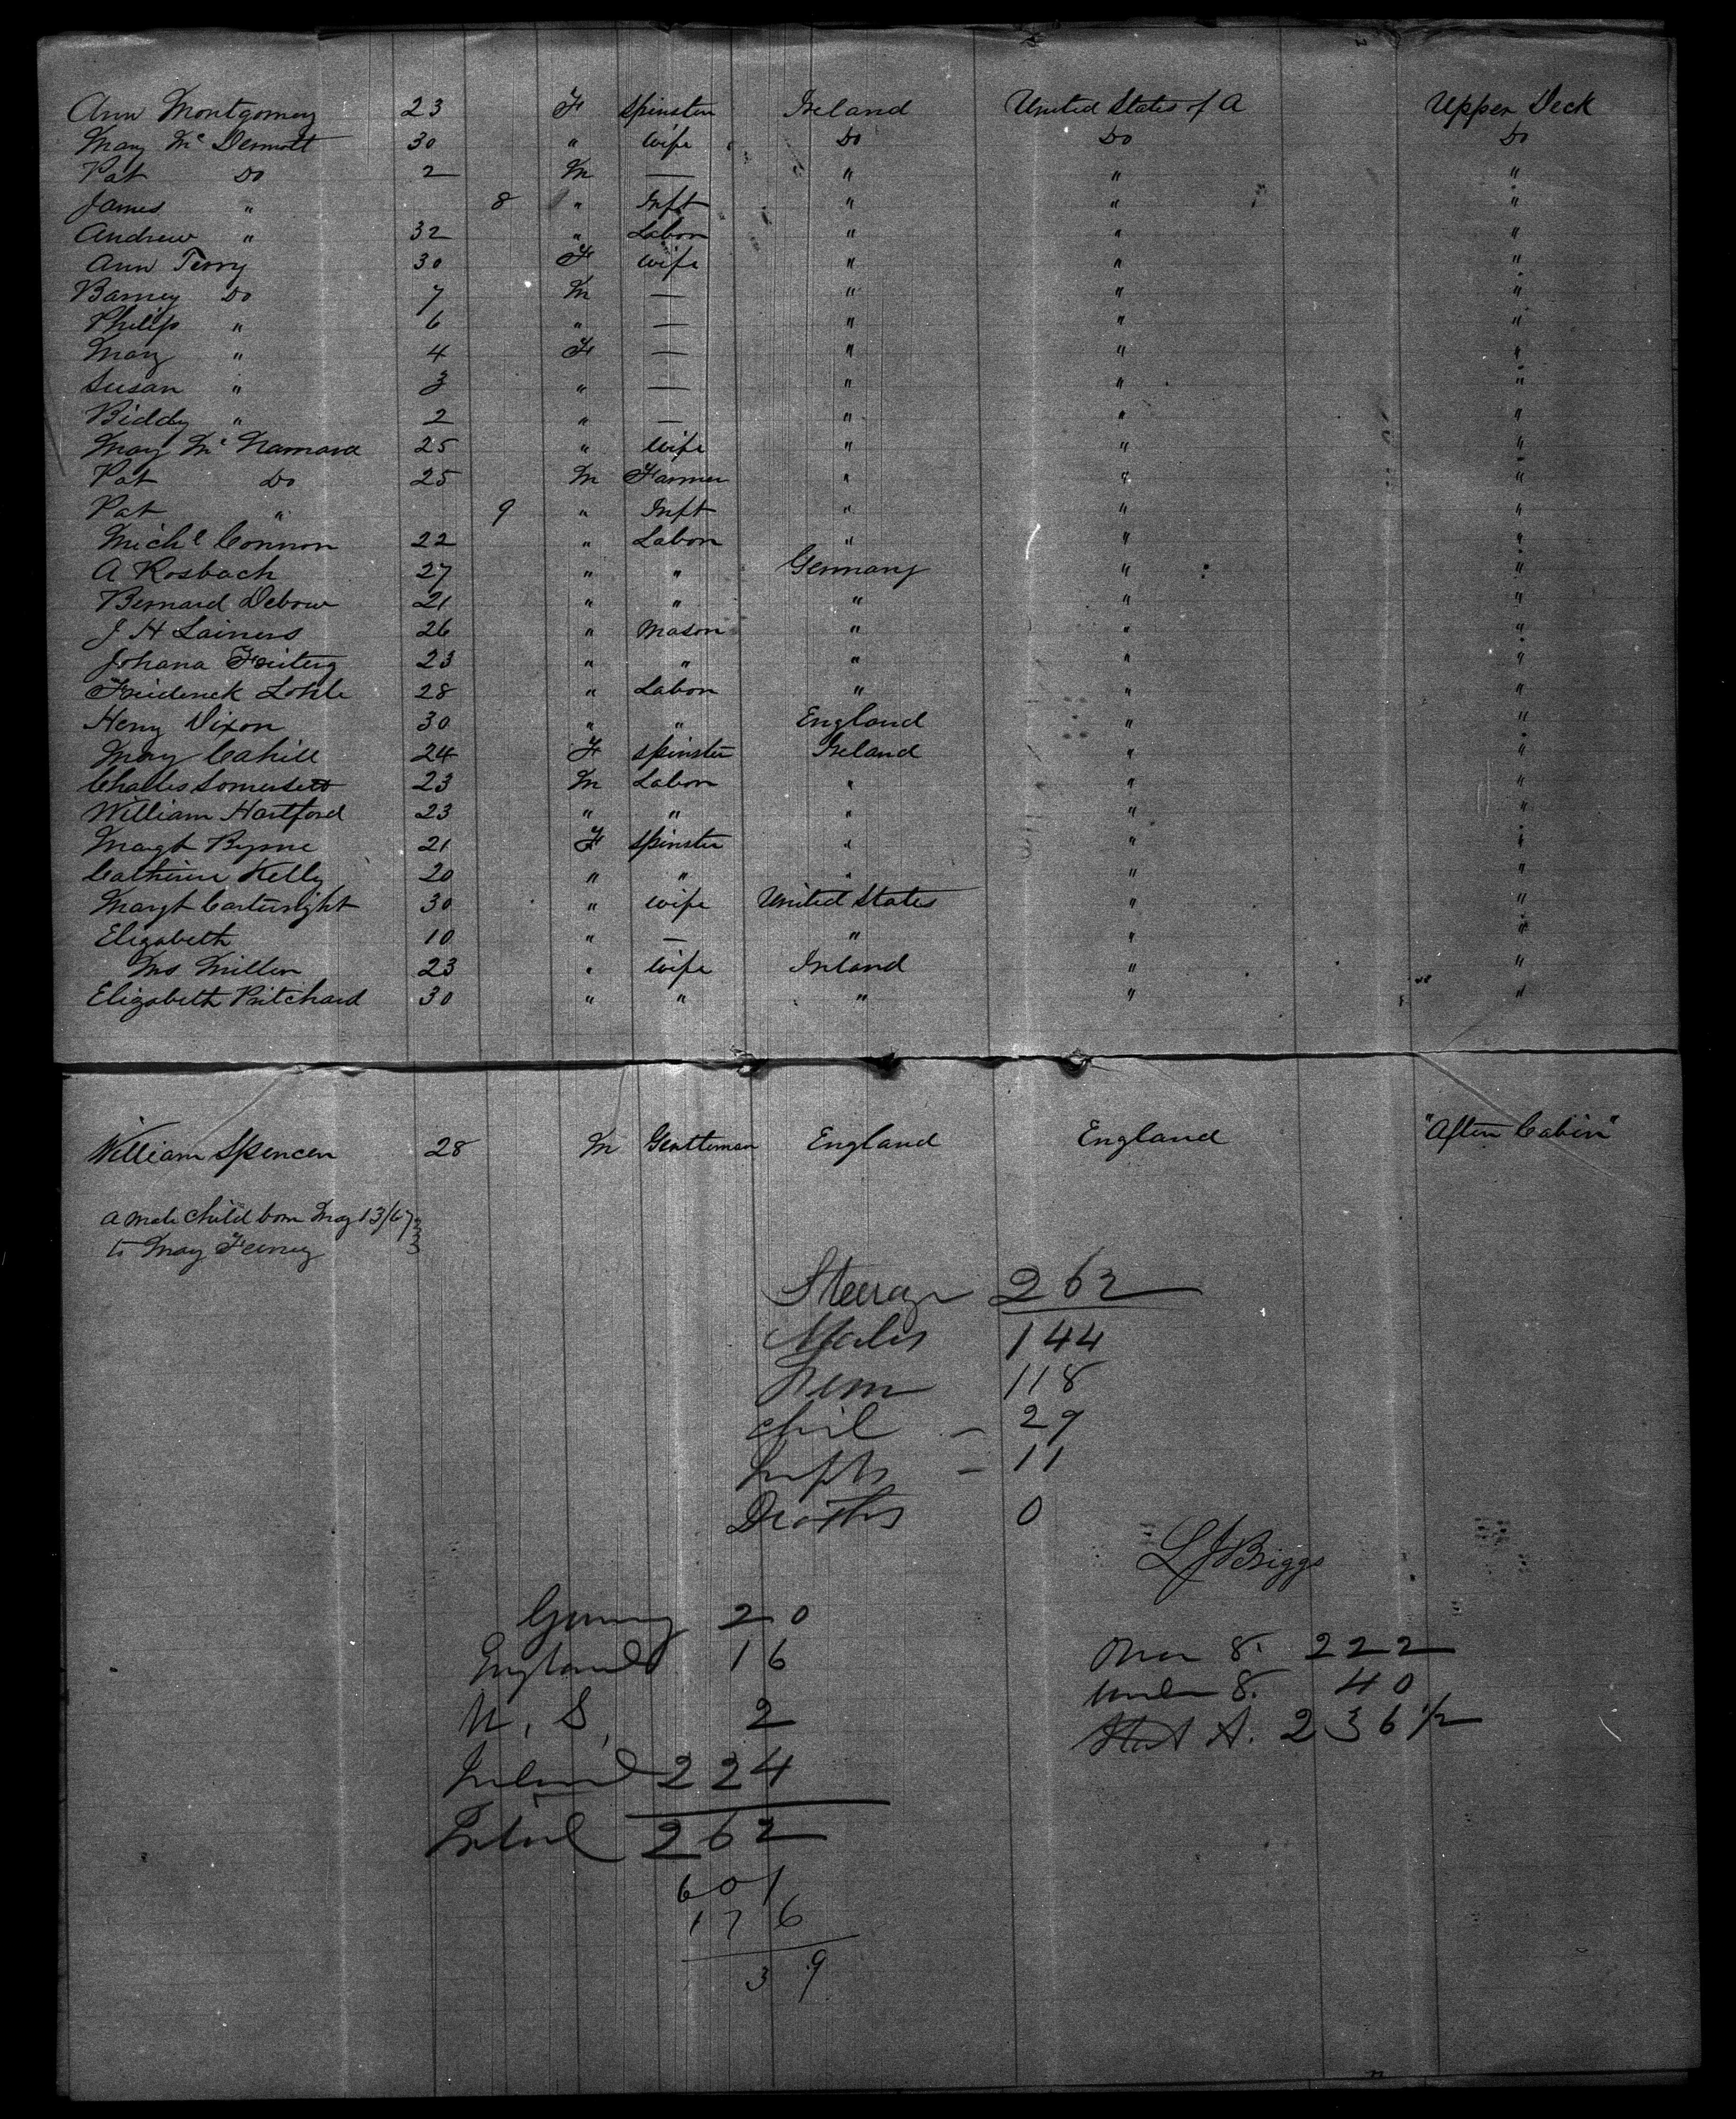 Ann Montgomery 23 F Spinster Ireland United States of A Upper Deck
Mary McDermott 30 " Wife Do Do Do
Pat Do 2 M — " " "
James " 8 " Inft " " "
Andrew " 32 " Labor " " "
Ann Terry 30 F Wife " " "
Barney Do 7 M — " " "
Philip " 6 " — " " "
Mary " 4 F — " " "
Susan " 3 " — " " "
Biddy " 2 " — " " "
Mary McNamara 25 " Wife " " "
Pat Do 25 M Farmer " " "
Pat " 9 " Inft " " "
Michl Connor 22 " Labor " " "
A Rosbach 27 " " Germany " "
Bernard Debow 21 " " " " "
J H Lainers 26 " Mason " " "
Johana 23 " " " " "
Friederick Lohle 28 " Labor " " "
Henry Dixon 30 " " England " "
Mary Cahill 24 F Spinster Ireland " "
Charles Somersett 23 M Labor " " "
William Hartford 23 " " " " "
Margt Byrne 21 F Spinster " " "
Catherine Kelly 20 " " " " "
Margt Cartwright 30 " Wife United States " "
Elizabeth 10 " — " " "
Mrs Miller 23 " Wife Ireland " "
Elizabeth Pritchard 30 " " " " "
William Spencer 28 M Gentleman England England "After Cabin"
a male child born May 13/67
to Mary Feeney
Steerage 262
Males 144
Fem 118
Chil — 29
Infts — 11
Deaths 0
L J Briggs
Germy 20
England 16
U, S, 2
Ireland 224
Total 262
601
176
39
Over 8. 222
Under 8. 40
Stat A. 236 1/2